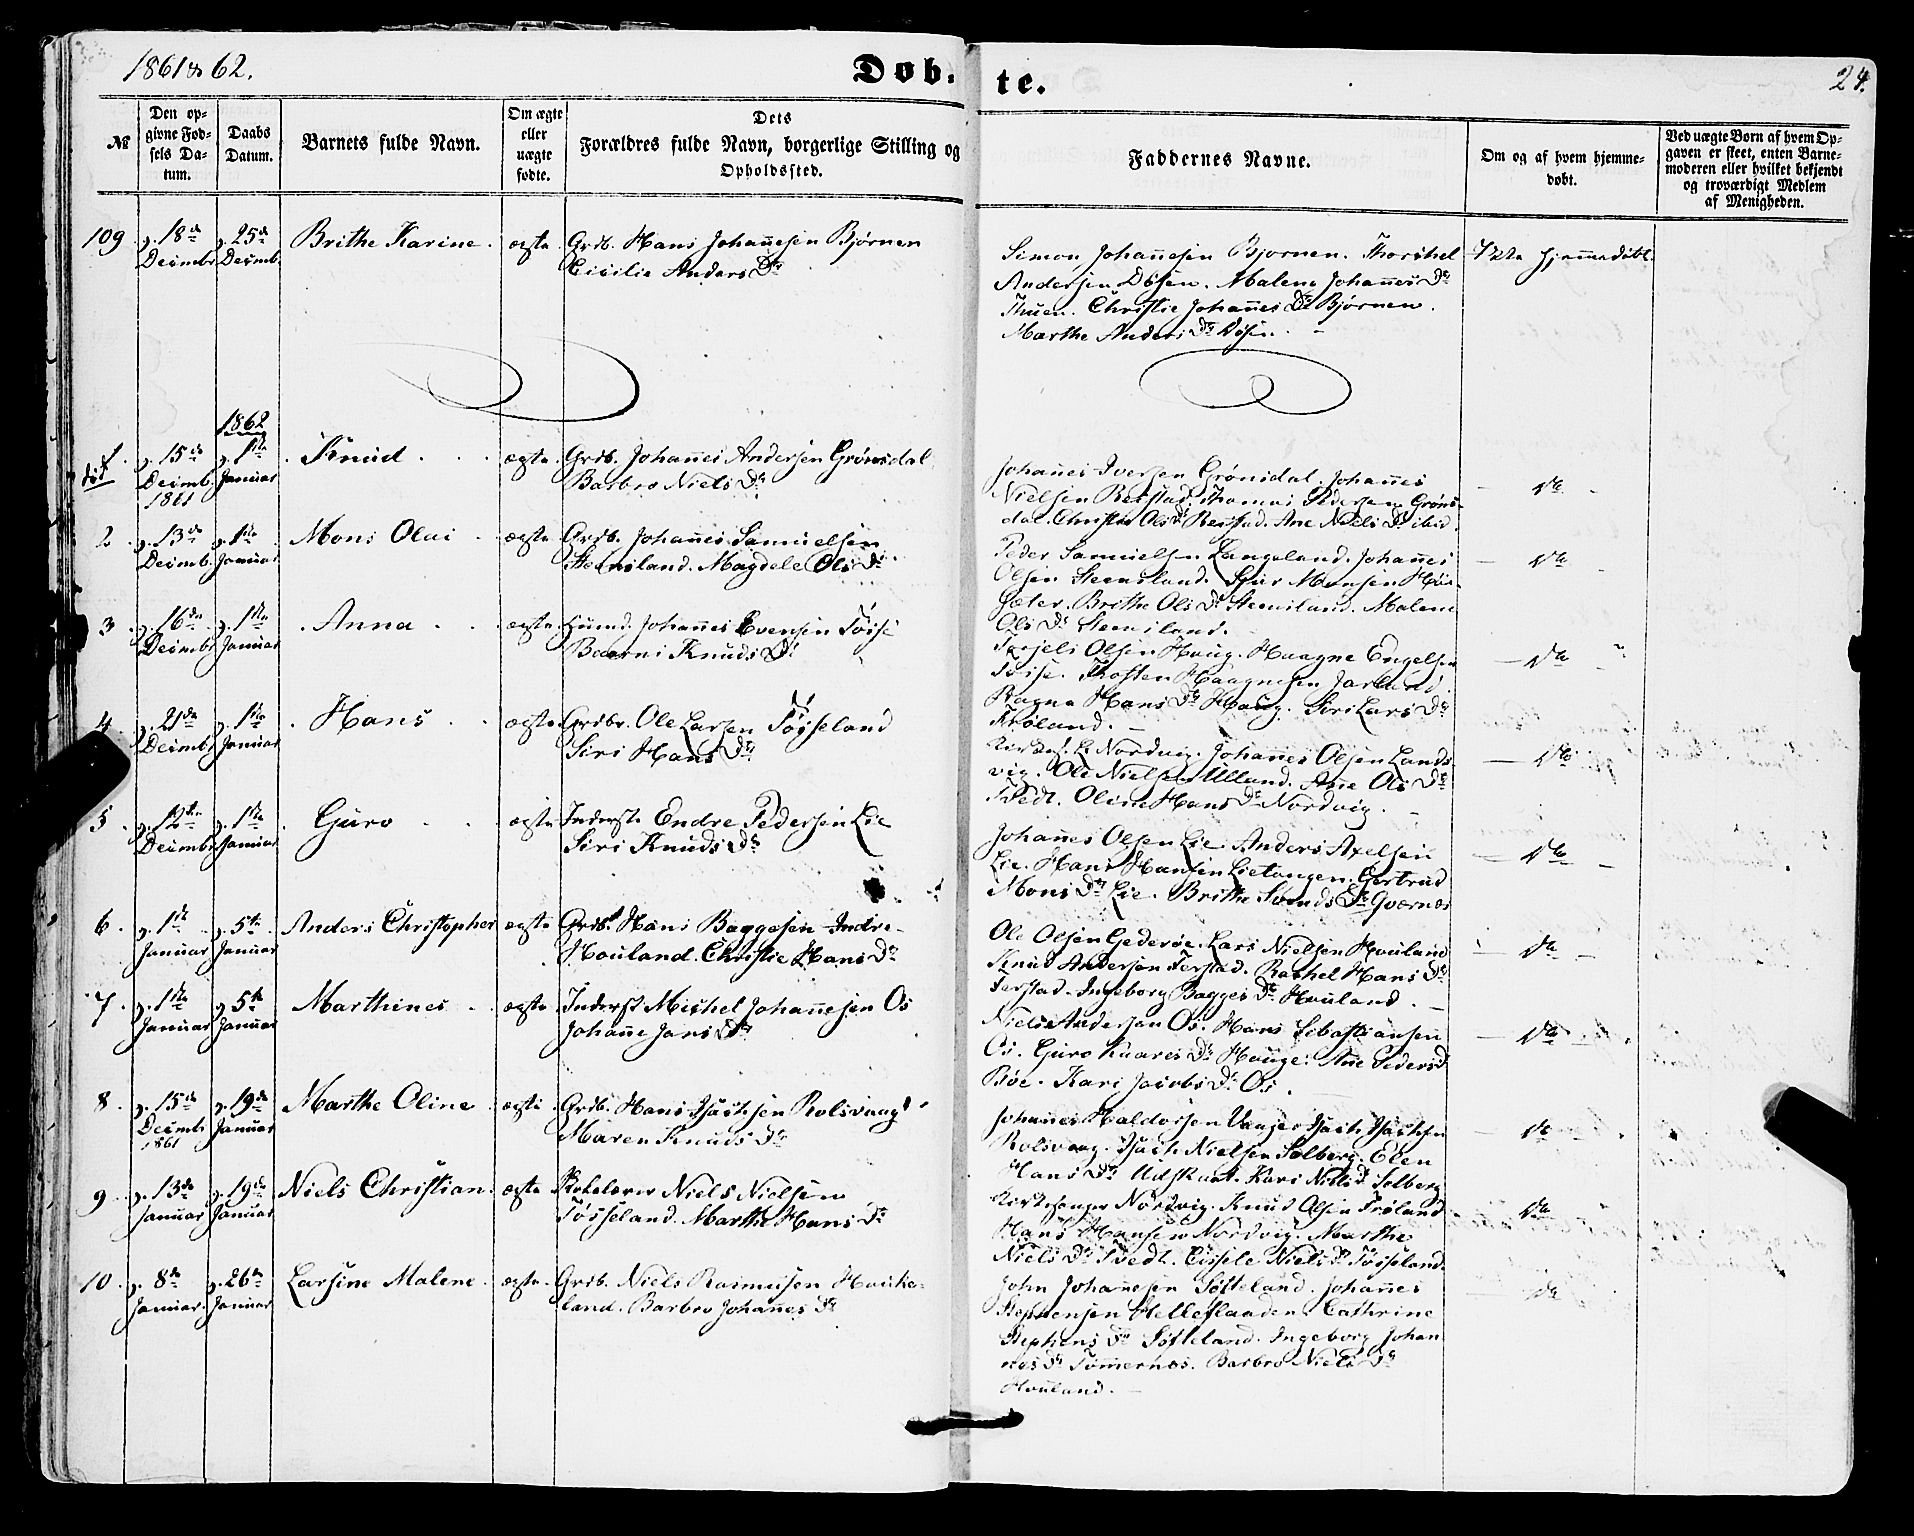 1861 & 62.
Døb-
te.
24.
№
Den opgivne Fødsels Datum.
Daabs Datum.
Barnets fulde Navn.
Om ægte eller uægte fødte.
Dets
Forældres fulde Navn, borgerlige Stilling og
Opholdssted.
Faddernes Navne.
Om og af hvem hjemmedøbt.
Ved uægte Børn af hvem Opgaven er skeet, enten Barnemoderen eller hvilket bekjendt og troværdigt Medlem af Menigheden.
109 d. 18de Decmbr d. 25de Decmb. Brithe Karine. ægte. Grdb. Hans Johañesen Bjørnen
Cicilie Anders Dr
Simon Johañesen Bjørnen. Thorchel
Andersen Døsen. Malene Johañes Dr
Thuen. Christie Johañes Dr Bjørnen.
Marthe Anders Dr Døsen.
Ikke hjemmedøbt.
1862
1. d. 15de Decmb. 1861 d. 1ste Januar Knud ægte. Grdb. Johañes Andersen Grønsdal
Barbro Niels Dr
Johañes Iversen Grønsdal. Johañes
Nielsen Thomas Pedersen Grøns-
dal. Christie Ols Dr Ane Niels Dr ibid.
do
2. d. 13de Decmb. d. 1ste Januar Mons Olai ægte Grdb. Johañes Samuelsen
Steensland. Magdele Ols Dr
Peder Samuelsen Langeland. Johañes
Olsen Steensland. Sjur Monsen
Brithe Ols Dr Steensland. Malene
Ols Dr Steensland.
do
3. d. 16de Decmbr d. 1ste Januar Anna ægte Johañes Evensen
Knuds Dr
Torjels Olsen Haug. Haagne Engelsen
Thosten Haagnesen
Ragna Hans Dr Haug. Siri Lars Dr
Frøland.
do
4. d. 21de Decmbr d. 1ste Januar Hans ægte Grdbr. Ole Larsen Tøsseland
Siri Hans Dr
Nordvig. Johañes Olsen Lands-
vig. Ole Nielsen Ulland. Ane Ols Dr
Tvedt. Oline Hans Dr Nordvig.
do
5. d. 12te Decmbr d. 1ste Januar Guro ægte Inderste Endre Pedersen Lie
Siri Knuds Dr
Johañes Olsen Lie. Anders Axelsen
Lie. Hans Hansen Lietangen. Gertrud
Mons Dr Lie. Brithe Dr
do
6. d. 1ste Januar d. 5te Januar Anders Christopher ægte Grdb. Hans Baggesen Indre
Houland. Christie Hans Dr
Ole Olsen Gederøe. Lars Nielsen Houland
Knud Andersen Ferstad. Rachel Hans Dr
Ferstad. Ingeborg Bagges Dr Houland.
do
7. d. 1ste Januar d. 5te Januar Marthines ægte Inderst Michel Johañesen Os
Johañe Jans Dr
Niels Andersen Os. Hans Sebastiansen
Os. Guro Dr Hauge. Ane Peders Dr
Bøe. Kari Jacobs Dr Os.
do
8. d. 15de Decmbr 1861 d. 19de Januar Marthe Oline ægte Grdb. Hans Isachsen Rolsvaag
Maren Knuds Dr
Johañes Haldorsen Isach Isachsen
Rolsvaag. Isach Nielsen Solberg. Elen
Hans Dr Udskaat. Kari Niels Dr Solberg
do
9. d. 13de Januar d. 19de Januar Niels Christian ægte Niels Nielsen
Tøsseland. Marthe Hans Dr
Kirkesanger Nordvig. Knud Olsen Frøland
Hans Hansen Nordvig. Marthe
Niels Dr Tvedt. Cissele Niels Dr Tøsseland.
do
10. d. 8de Januar. d. 26de Januar Larsine Malene. ægte. Grdb. Niels Rasmusen Hauke-
land. Barbro Johañes Dr
John Johañesen Søfteland. Johañes
Stephensen Helleflaaden. Cathrine
Stephens Dr Søfteland. Ingeborg Johan
nes Dr Tømernes. Barbro Niels Dr
Houland.
do